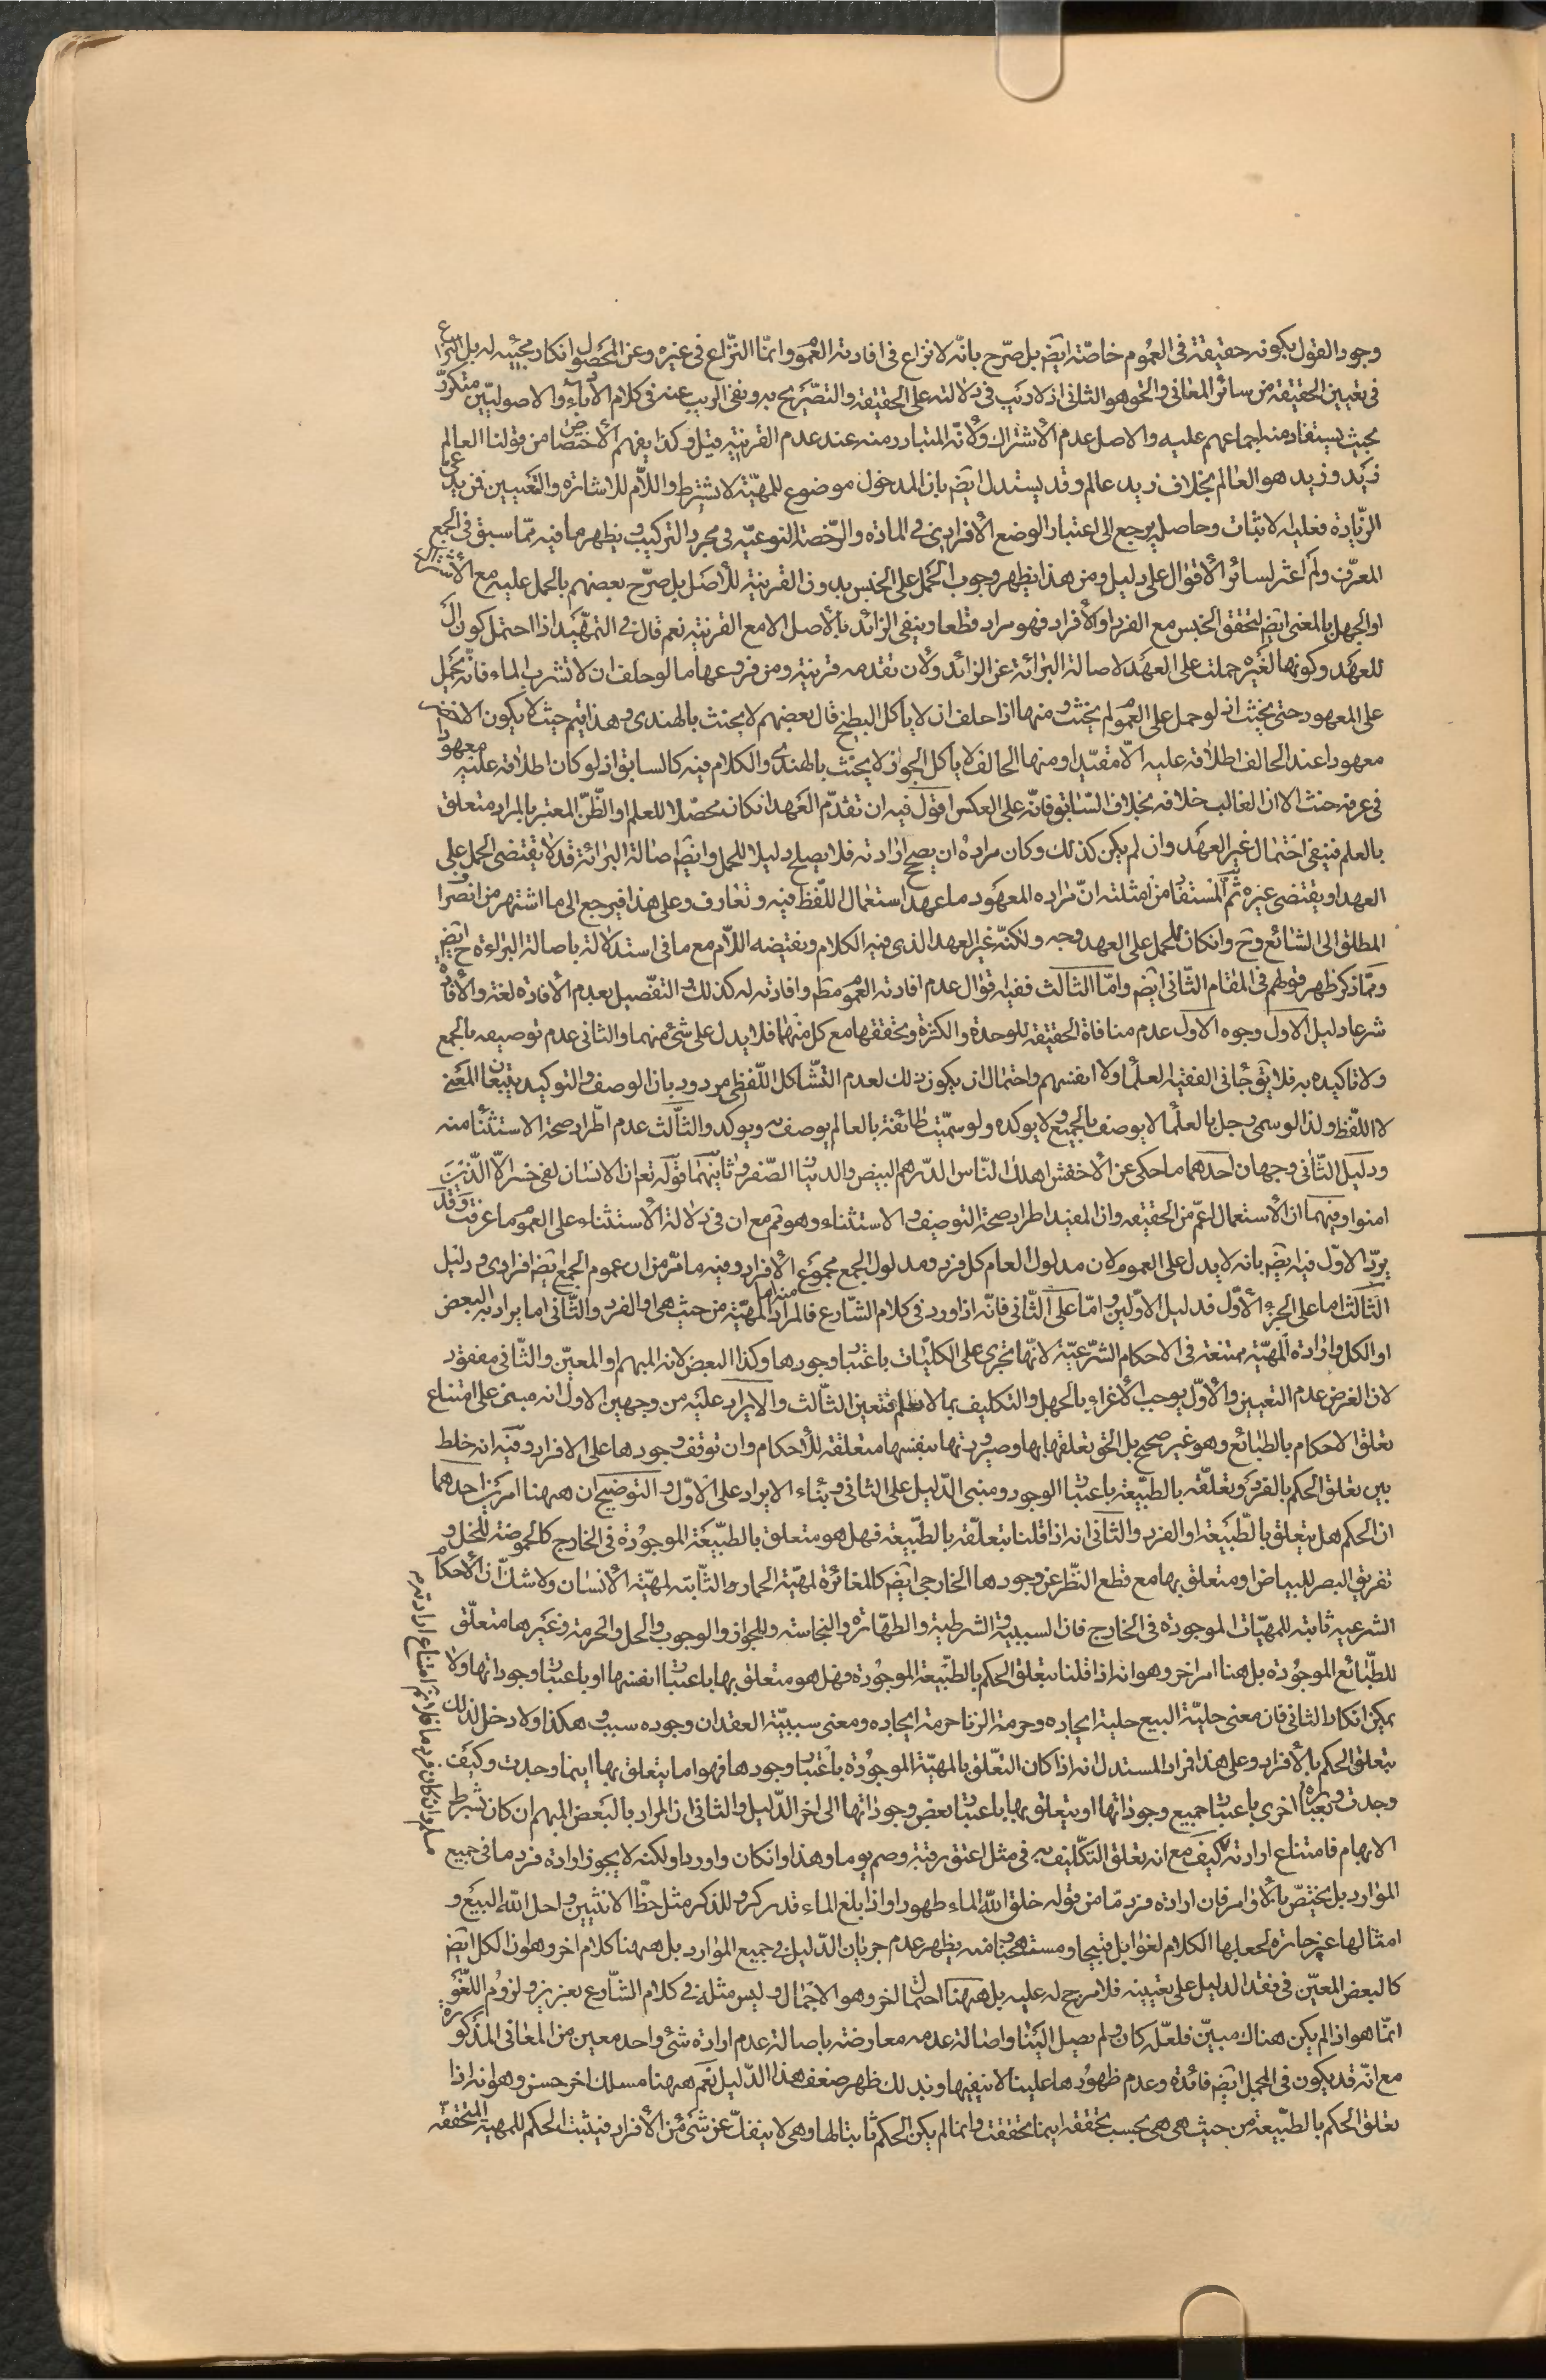 وجود القول بكونه حقيقة فى العموم خاصّة ايضٍ بل صرّح بانّه لا نزاع فى افادته العموم وانّما النّزاع فى غيره وعن المحصول انكار مجيئه له بل النزاع
فى تعيين الحقيقة من سائر المعانى والحق هو الثانى اذ لا ريب فى دلالته على الحقيقة والتصّريح به ونفى الريب عنه فى كلام الادباء والاصوليّين متكرّر
بحيث يستفاد منه اجماعهم عليه والاصل عدم الاشتراك ولانّه المتبادر منه عند عدم القرينة قيل وكذا يفهم الاختصاص من قولنا العالم
زيد وزيد هو العالم بخلاف زيد عالم وقد يستدل ايضٍ بان المدخول موضوع للمهيّة لا بشرط واللّام للاشارة والتعيين فمن يدّعى
الزّيادة فعليه الاثبات وحاصله يرجع الى اعتبار الوضع الافرادى فى المادة والرّخصة النوعيّة فى مجرد التركيب ويظهر ما فيه ممّا سبق فى الجمع
المعرّف ولم اعثر لسائر الاقوال على دليل ومن هذا يظهر وجوب الحمل على الجنس بدون القرينة للاصل بل صرّح بعضهم بالحمل عليه مع الاشتراك
او الجهل بالمعنى ايضٍ لتحقق الجنس مع الفرد او الأفراد فهو مراد قطعا وينفى الزائد بالأصل الا مع القرينة نعم قال فى التمهّيد اذا احتمل كون ال
للعهد وكونها لغيره حملت على العهد لاصالة البرائة عن الزائد ولان تقدمه قرينة ومن فروعها ما لو حلف ان لا تشرب الماء فانّه يحمل
على المعهود حتى يحنث اذ لو حمل على العموم لم يحنث ومنها اذا حلف ان لا يأكل البطيخ قال بعضهم لا يحنث بالهندى وهذا يتم حيث لا يكون الاخضر
معهودا عند الحالف اطلاقه عليه الّا مقيّدا ومنها الحالف لا يأكل الجوز لا يحنث بالهندى والكلام فيه كالسابق اذ لو كان اطلاقه عليه معهودا
فى عرفه حنث الا ان الغالب خلافه بخلاف السّابق فانّه على العكس اقول فيه ان تقدّم العهد انكان محصّلا للعلم او الظّن المعتبر بالمراد متعلق
بالعلم فينفى احتمال غير العهد وان لم يكن كذلك وكان مراده ان يصح ارادته فلا يصلح دليلا للحمل وايضٍ اصالة البرائة قد لا يقتضى الحمل على
العهد او يقتضى غيره ثم المستفاد من امثلته انّ مراده المعهود ما عهد استعمال اللّفظ فيه وتعارف وعلى هذا فيرجع الى ما اشتهر من انصراف
المطلق الى الشائع وح وانكان للحمل على العهد وجه ولكنّه غير العهد الذى فيه الكلام ويفتيضه اللّام مع ما فى استدلاله باصالة البراءة ح ايضٍ
وممّا ذكر ظهر قولهم فى المقام الثّانى ايضٍ وامّا الثالث ففيه قوال عدم افادته العموم مطم وافادته له كذلك والتفصّيل بعدم الافادة لغة والافادة
شرعا دليل الاول وجوه الاول عدم منافاة الحقيقة للوحدة والكثرة وتحققها مع كل منهما فلا يدل على شئ منهما والثانى عدم توصيفه بالجمع
ولا تاكيده به فلا يق جائنى الفقيه العلماء ولا انفسهم واحتمال ان يكون ذلك لعدم التشّاكل اللّفظى مردود بان الوصف والتوكيد يتبعان المعنى
لا اللّفظ ولذا لو سمى رجل بالعلماء لا يوصف بالجمع ولا يوكده ولو سمّيت طائفة بالعالم يوصف به ويوكد والثّالث عدم اطّراد صحة الاستثناء منه
ودليل الثّانى وجهان احدهما ما حكى عن الاخفش اهلك النّاس الدّرهم البيض والدينار الصّفر وثانيهما قوله تع ان الانسان لفى خسر الّا الّذين
امنوا وفيهما ان الاستعمال اعمّ من الحقيقه وان المفيد اطراد صحة التوصيف والاستثناء وهو تم مع ان فى دلالة الاستثناء على العموم ما عرفت وقد
يردّ الاوّل فيه ايضٍ بانه لا يدل على العموم لان مدلول العام كل فرد ومدلول الجمع مجموع الافراد وفيه ما مرّ من ان عموم الجمع ايضٍ افرادى ودليل
الثّالث اما على الجزء الاوّل فدليل الاوّلين وامّا على الثّانى فانّه اذا ورد فى كلام الشّارع فالمراد منه اما المهيّة من حيث هى او الفرد والثّانى اما يراد به البعض
او الكل وارادة المهيّة ممتنعة فى الاحكام الشّرعيّة لانّها تجرى على الكليّات باعتبار وجودها وكذا البعض لانه المبهم او المعيّن والثّانى مفقود
لان الغرض عدم التعيين والاوّل يوجب الاغراء بالجهل والتكليف بما لا يعلم فتعين الثّالث والايراد عليه من وجهين الاول انه مبنى على امتناع
تعلق الاحكام بالطبائع وهو غير صحيح بل الحق تعلقها بها وصيرورتها بنفسها متعلقة للاحكام وان توقف وجودها على الافراد وفيه انه خلط
بين تعلق الحكم بالفرد وتعلّقه بالطبّيعة باعتبار الوجود ومبنى الدّليل على الثانى وبناء الايراد على الاوّل والتوضيح ان ههنا امرين احدهما
ان الحكم هل يتعلق بالطّبيعة او الفرد والثّانى انه اذا قلنا بتعلّقه بالطبّيعة فهل هو متعلق بالطبّيعة الموجودة فى الخارج كالحموضة للخل و
تفريق البصر للبياض او متعلق بها مع قطع النّظر عن وجودها الخارجى ايضٍ كالمغائرة لمهيّة الحمار والثّابتة لمهيّة الانسان ولا شك ان الاحكام
الشرعيه ثابتة للمهيّات الموجودة فى الخارج فان السببية والشرطية والطهارة والنجاسة والجواز والوجوب والحل والحرمة وغيرها متعلّق
للطّبائع الموجودة بل هنا امر اخر وهو انه اذا قلنا بتعلق الحكم بالطبّيعة الموجودة فهل هو متعلق بها باعتبار انفسها او باعتبار وجوداتها ولا
يمكن انكار الثانى فان معنى حليّة البيع حلية ايجاده وحرمة الزنا حرمة ايجاده ومعنى سببيّة العقد ان وجوده سبب وهكذا ولا دخل لذلك
بتعلق الحكم بالأفراد وعلى هذا فمراد المستدل انه اذا كان التعّلق بالمهيّة الموجودة باعتبار وجودها فهو اما يتعلق بها اينما وجدت وكيف
وجدت وبعبارة اخرى باعتبار جميع وجوداتها او يتعلق بها باعتبار بعض وجوداتها الى اخر الدّليل والثانى ان المراد بالبعض المبهم ان كان بشرط
الابهام فامتناع ارادته مسلم وان كان فرد ما فلانم امتناع ارادته كيف مع انه تعلق التكّليف به فى مثل اعتق رقبة وصم يوما وهذا وانكان واردا ولكنه لا يجوز ارادة فرد ما فى جميع
الموارد بل يختصّ بالاوامر فان ارادة فرد مّا من قوله خلق الله الماء طهورا واذا بلغ الماء قدر كر وللذكر مثل حظّ الانثيين واحل الله البيع و
امثالها غير جائزة لجعلها الكلام لغوا بل قبيحا ومستهجنا ومنه يظهر عدم جريان الدّليل فى جميع الموارد بل ههنا كلام اخر وهو ان الكل ايضٍ
كالبعض المعيّن فى فقد الدليل على تعيينه فلا مرجح له عليه بل ههنا احتمال اخر وهو الاجمال وليس مثله فى كلام الشّارع بعزيز ولزوم اللّغو
انمّا هو اذ الم يكن هناك مبيّن فلعلّه كان ولم يصل الينا واصالة عدمه معارضة باصالة عدم ارادة شئ واحد معين من المعانى المذكورة
مع انّه قد يكون فى المجمل ايضٍ فائدة وعدم ظهورها علينا لا ينفيها وبذلك ظهر ضعف هذا الدّليل نعم ههنا مسلك اخر حسن وهو انه اذا
تعلق الحكم بالطبّيعة من حيث هى هى بحسب تحققه اينما تحققت وانما لم يكن الحكم ثابتا لها وهى لا ينفكّ عن شئ من الافراد فيثبت الحكم للمهية المتحققّه